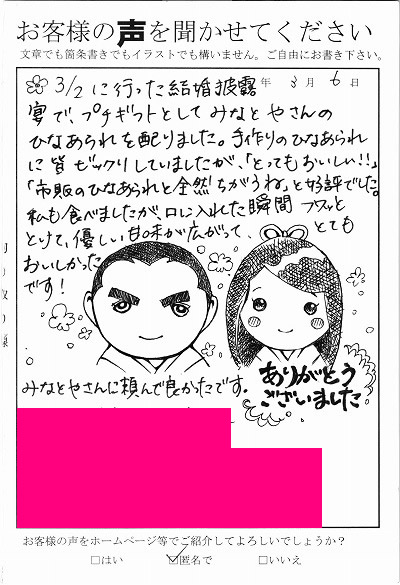 お客様の声を聞かせてください
文章でも箇条書きでもイラストでも構いません。ご自由にお書き下さい。
年 3月 6日
3/2 に行った結婚披露
宴で、プチギフトとしてみなとやさんの
ひなあられを配りました。手作りのひなあられ
に皆ビックリしていましたが、「とってもおいしい!!」
「市販のひなあられと全然ちがうね」と好評でした。
私も食べましたが、口に入れた瞬間フワッと
とけて、優しい甘味が広がって、とても
おいしかった
です!
みなとやさんに頼んで良かったです。
ありがとう
ございました
お客様の声をホームページ等でご紹介してよろしいでしょうか?
□はい ☑匿名で □いいえ